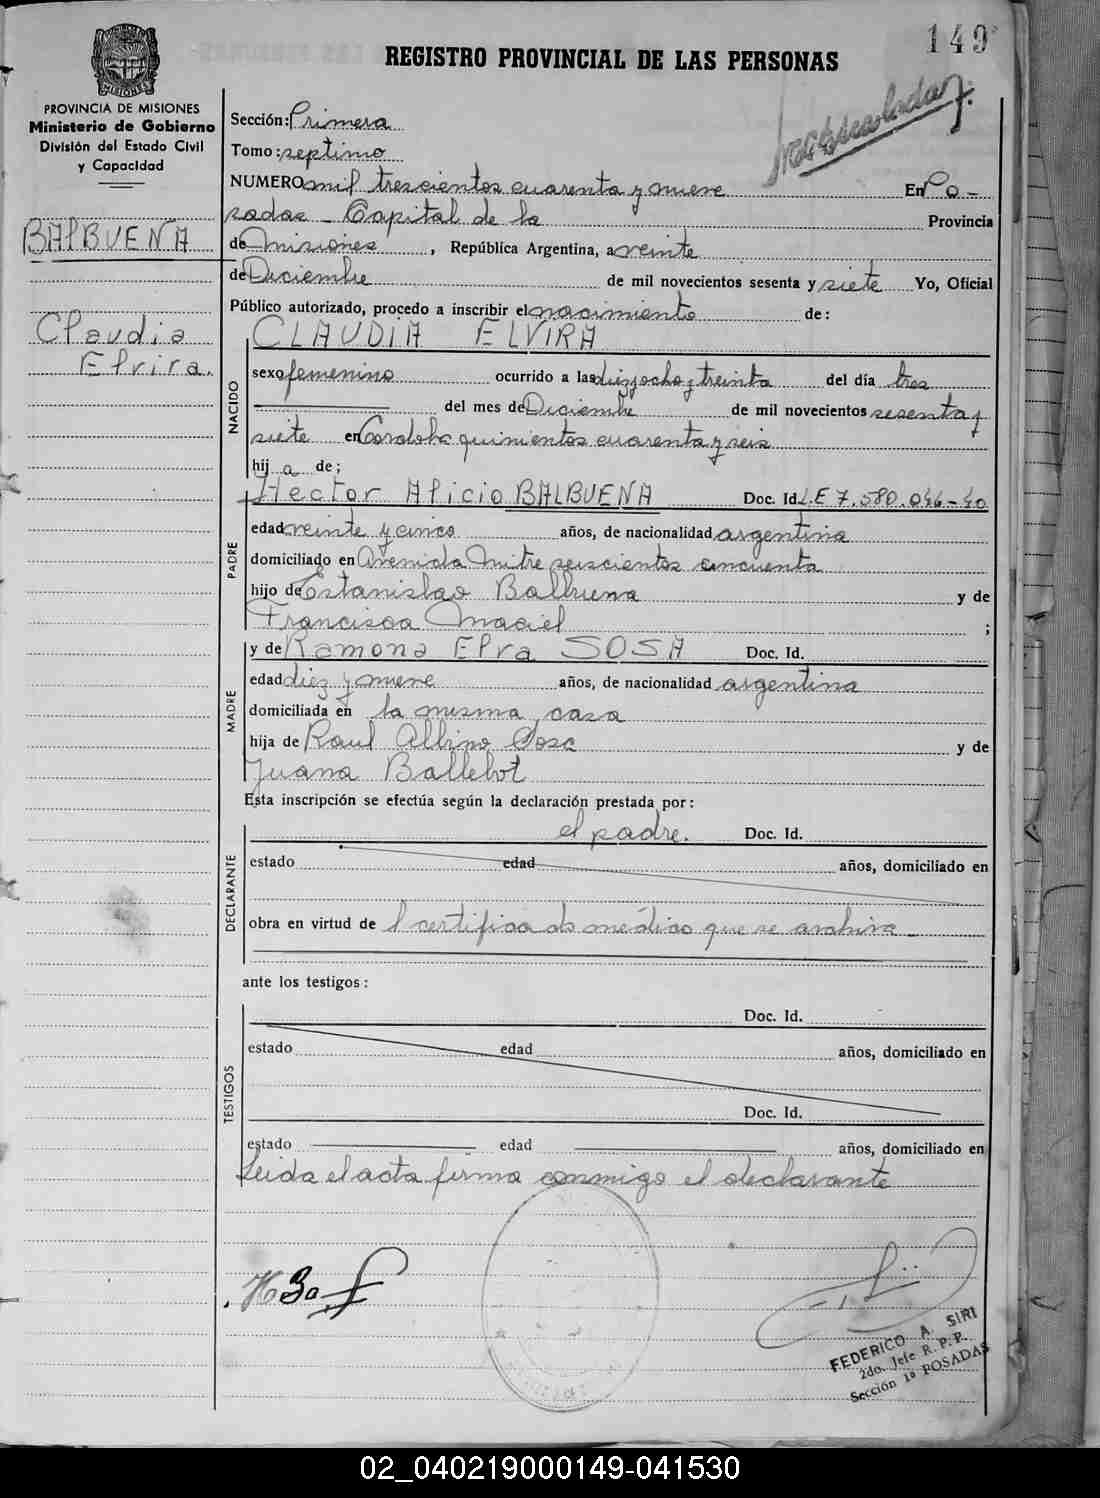 149
REGISTRO PROVINCIAL DE LAS PERSONAS
MISIONES
PROVINCIA DE MISIONES
Ministerio de Gobierno
División del Estado Civil
y Capacidad
BALBUENA
Claudia
Elvira.
Sección: Primera
Tomo: septimo
NUMERO mil trescientos cuarenta y nueve En Po-
sadas - Capital de la Provincia
de Misiones, República Argentina, a veinte
de Diciembre de mil novecientos sesenta y siete Yo, Oficial
Público autorizado, procedo a inscribir el nacimiento de:
CLAUDIA ELVIRA
NACIDO
sexo femenino ocurrido a las diez y ocho y treinta del día tres
del mes de Diciembre de mil novecientos sesenta y
siete en Cordoba quinientos cuarenta y seis
hij a de;
Hector Alicio BALBUENA Doc. Id. L.E 7.580.046-40
PADRE
edad veinte y cinco años, de nacionalidad argentina
domiciliado en Avenida Mitre seiscientos cincuenta
hijo de Estanislao Balbuena y de
Francisca Maciel ;
y de Ramona Elva SOSA Doc. Id.
MADRE
edad diez y nueve años, de nacionalidad argentina
domiciliada en la misma casa
hija de Raul Albino Sosa y de
Juana Ballebot
Esta inscripción se efectúa según la declaración prestada por:
el padre. Doc. Id.
DECLARANTE
estado edad años, domiciliado en
obra en virtud de l certificado médico que se archiva
ante los testigos:
Doc. Id.
TESTIGOS
estado edad años, domiciliado en
Doc. Id.
estado edad años, domiciliado en
Leida el acta firma conmigo el declarante
FEDERICO A. SIRI
2do. Jefe R. P. P.
Sección 1ª POSADAS
02_040219000149-041530